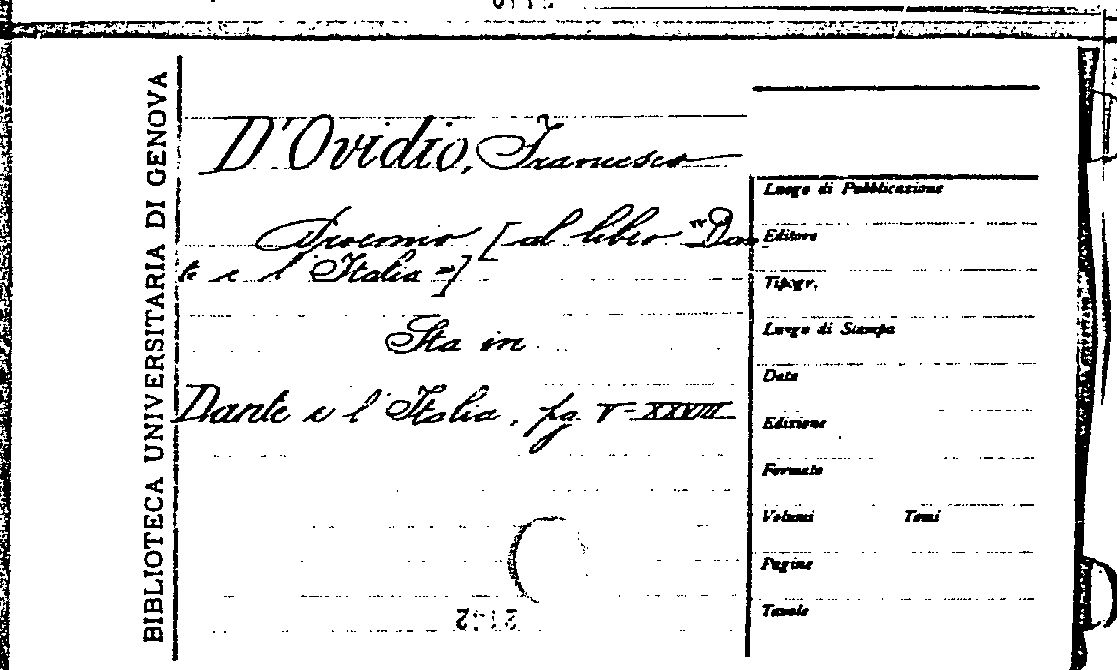 BIBLIOTECA UNIVERSITARIA DI GENOVA
D'Ovidio, Francesco
Proemio [al libro "Dan
te e l'Italia"]
Sta in
Dante e l'Italia, pg. V-XXVII
Luogo di Pubblicazione
Editore
Tipogr.
Luogo di Stampa
Data
Edizione
Formato
Volumi Tomi
Pagine
Tavole